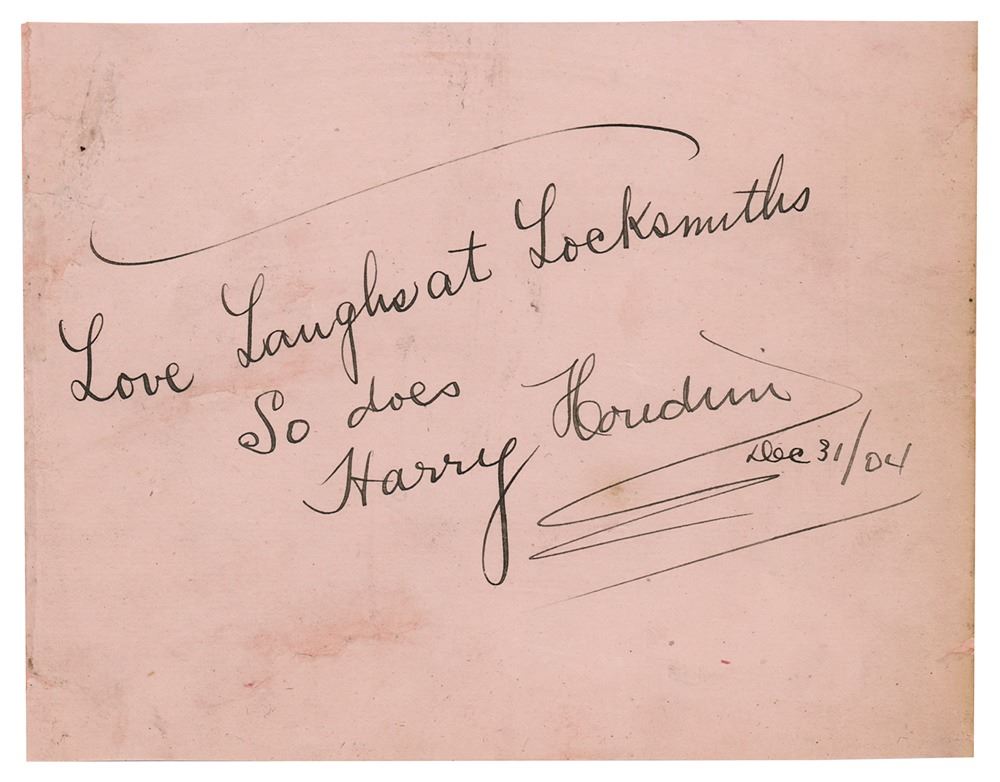 Love Laughs at Locksmiths
So does
Harry Houdini
Dec 31/04